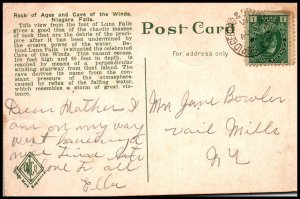 Rock of Ages and Cave of the Winds,
Niagara Falls.
This view from the foot of Luna Falls
give a good idea of the chaotic masses
of rock that are the debris of the preci-
pice after it has been undermined by the
erosive power of the water. Be-
Luna Falls is located the celebrated
Cave of the Winds. This vacant recess,
100 feet high and 60 feet in depth, is
reached by means of a perpendicular
winding stairway from Goat Island. The
cave derives its name from the con-
stant pressure of the atmosphere,
caused by rolls of the falling water,
which resembles a storm of great viol-
ence.
Post Card
For address only
Dear Mother I
am on my way
west having a
nice time
one to all
Ella
Mrs Jane Bowler
Vail Mills
NY